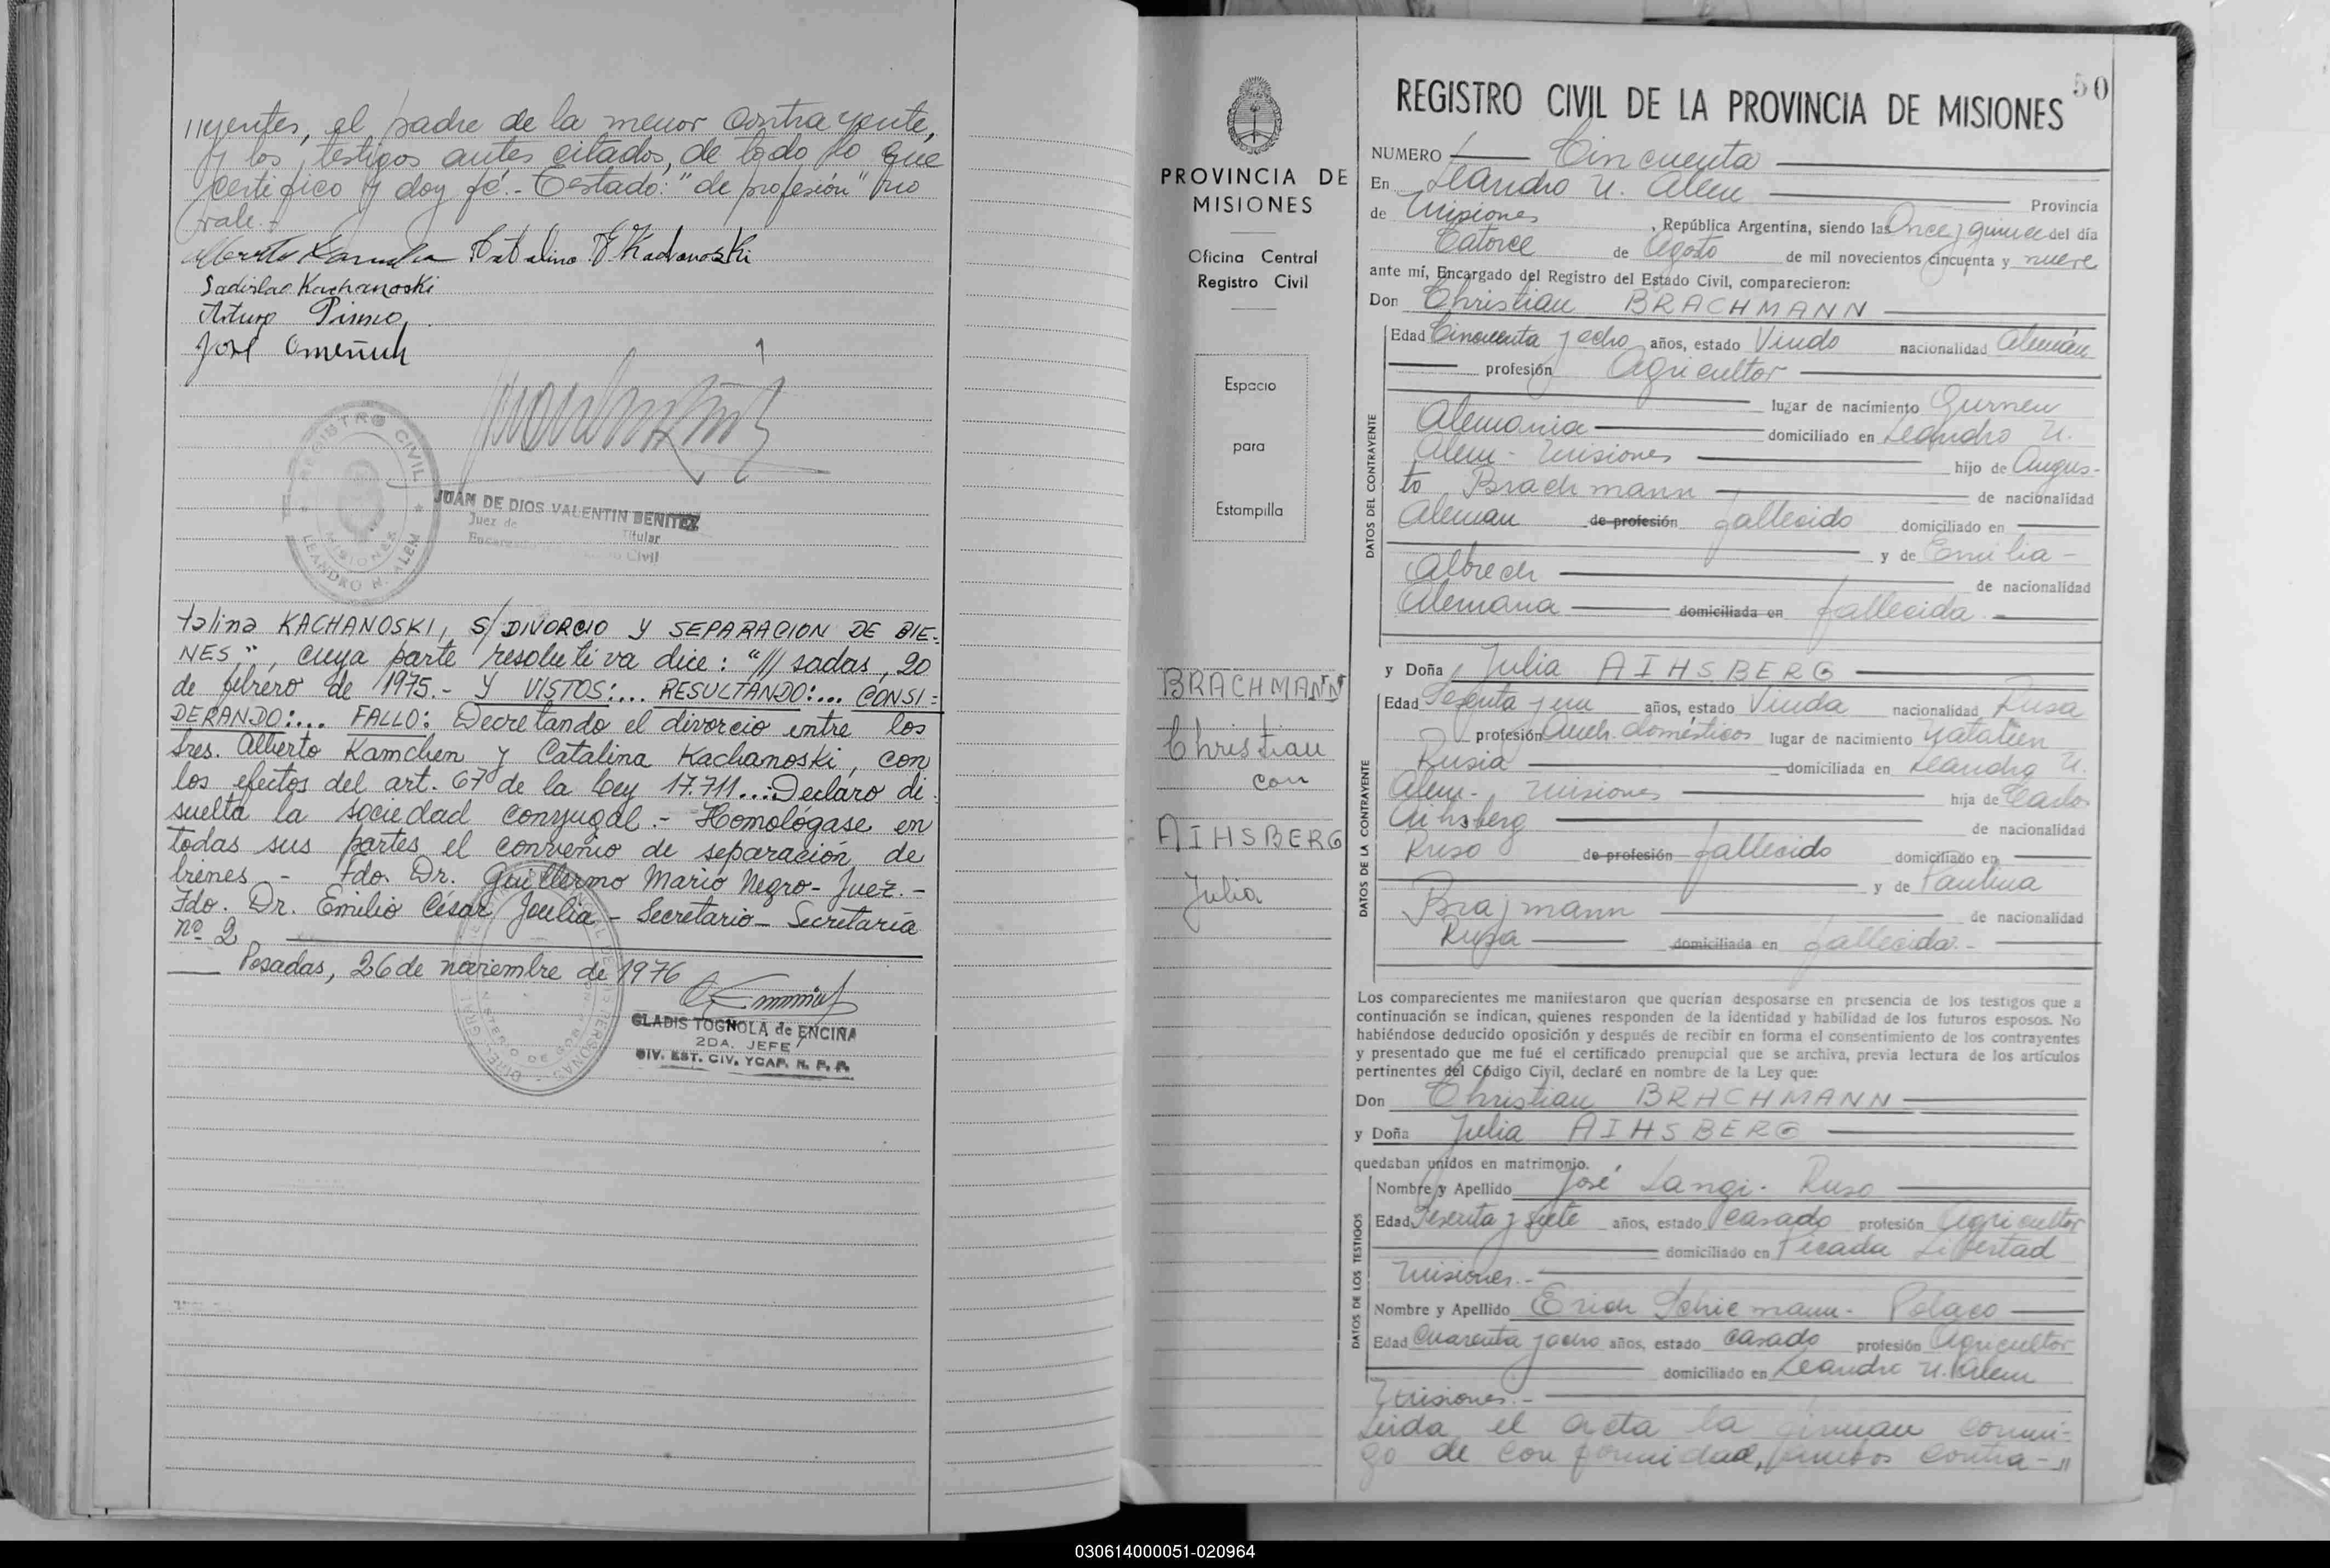 //yentes, el padre de la menor contrayente,
y los testigos antes citados, de todo lo que
certifico y doy fé.- Testado: "de profesión" no
vale.-
Ladislao Kachanoski
Arturo
José
REGISTRO CIVIL
MISIONES
LEANDRO N. ALEM
JUAN DE DIOS VALENTIN BENITEZ
Juez de Titular
Encargado Civil
talina KACHANOSKI, S/ DIVORCIO Y SEPARACION DE BIE-
NES", cuya parte resolutiva dice: "/// sadas, 20
de febrero de 1975.- Y VISTOS:... RESULTANDO:... CONSI-
DERANDO:... FALLO: Decretando el divorcio entre los
Sres. Alberto Kamchen y Catalina Kachanoski, con
los efectos del art. 67 de la Ley 17.711...: Declaro di-
suelta la sociedad conyugal.- Homológase en
todas sus partes el convenio de separación de
bienes.- Fdo. Dr. Guillermo Mario Negro- Juez.-
Fdo. Dr. Emilio César Joulia - Secretario - Secretaría
nº 2
Posadas, 26 de noviembre de 1976
GLADIS TOGNOLA de ENCINA
2DA. JEFE
DIV. EST. CIV. Y CAP. R. P. P.
PROVINCIA DE
MISIONES
Oficina Central
Registro Civil
Espacio
para
Estampilla
BRACHMANN
Christian
con
AIHSBERG
Julia
50
REGISTRO CIVIL DE LA PROVINCIA DE MISIONES
NUMERO Cincuenta
En Leandro N. Alem Provincia
de Misiones, República Argentina, siendo las Once y quince del día
Catorce de Agosto de mil novecientos cincuenta y nueve
ante mí, Encargado del Registro del Estado Civil, comparecieron:
Don Christian BRACHMANN
DATOS DEL CONTRAYENTE
Edad Cincuenta y ocho años, estado Viudo nacionalidad Alemán
profesión Agricultor
lugar de nacimiento Gurnen
Alemania domiciliado en Leandro N.
Alem - Misiones hijo de Augus-
to Brachmann de nacionalidad
Aleman de profesión fallecido domiciliado en
y de Emilia -
Albrech de nacionalidad
Alemana domiciliada en fallecida.-
y Doña Julia AIHSBERG
DATOS DE LA CONTRAYENTE
Edad Sesenta y un años, estado Viuda nacionalidad Rusa
profesión Queh. domésticos lugar de nacimiento
Rusia domiciliada en Leandro N.
Alem - Misiones hija de Carlos
Aihsberg de nacionalidad
Ruso de profesión fallecido domiciliado en
y de Paulina
Brajmann de nacionalidad
Rusa domiciliada en fallecida.-
Los comparecientes me manifestaron que querían desposarse en presencia de los testigos que a
continuación se indican, quienes responden de la identidad y habilidad de los futuros esposos. No
habiéndose deducido oposición y después de recibir en forma el consentimiento de los contrayentes
y presentado que me fué el certificado prenupcial que se archiva, previa lectura de los artículos
pertinentes del Código Civil, declaré en nombre de la Ley que:
Don Christian BRACHMANN
y Doña Julia AIHSBERG
quedaban unidos en matrimonio.
DATOS DE LOS TESTIGOS
Nombre y Apellido José Langi - Ruso
Edad Sesenta y siete años, estado Casado profesión Agricultor
domiciliado en Picada Libertad
Misiones.-
Nombre y Apellido Erich Schiemann - Polaco
Edad Cuarenta y ocho años, estado Casado profesión Agricultor
domiciliado en Leandro N. Alem
Misiones.-
Leida el acta la firman conmi-
go de conformidad, ambos contra-//
030614000051-020964